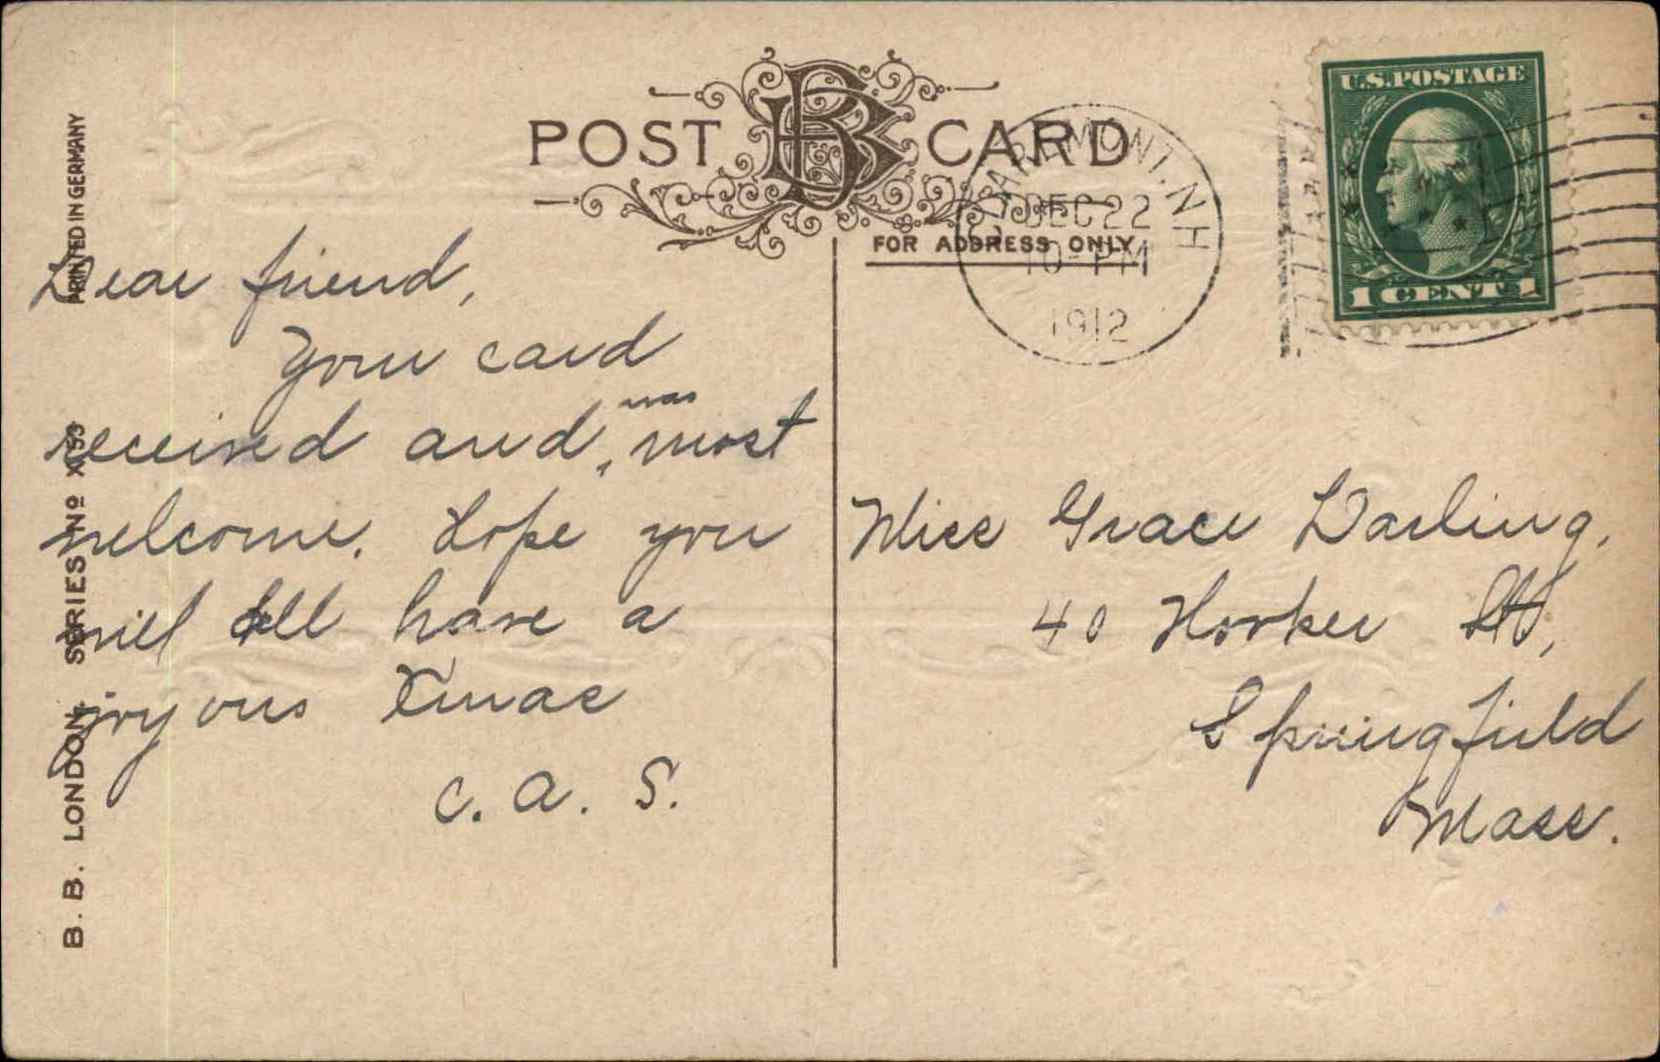 POST CARD
FOR ADDRESS ONLY
CLAREMONT, N.H.
DEC 22
10-PM
1912
U.S. POSTAGE
1 CENT 1
PRINTED IN GERMANY
B. B. LONDON. SERIES Nº
Dear friend,
Your card
received and was most
welcome. Hope you
will all have a
joyous Xmas
C. A. S.
Miss Grace Darling,
40 Hooker St,
Springfield
Mass.